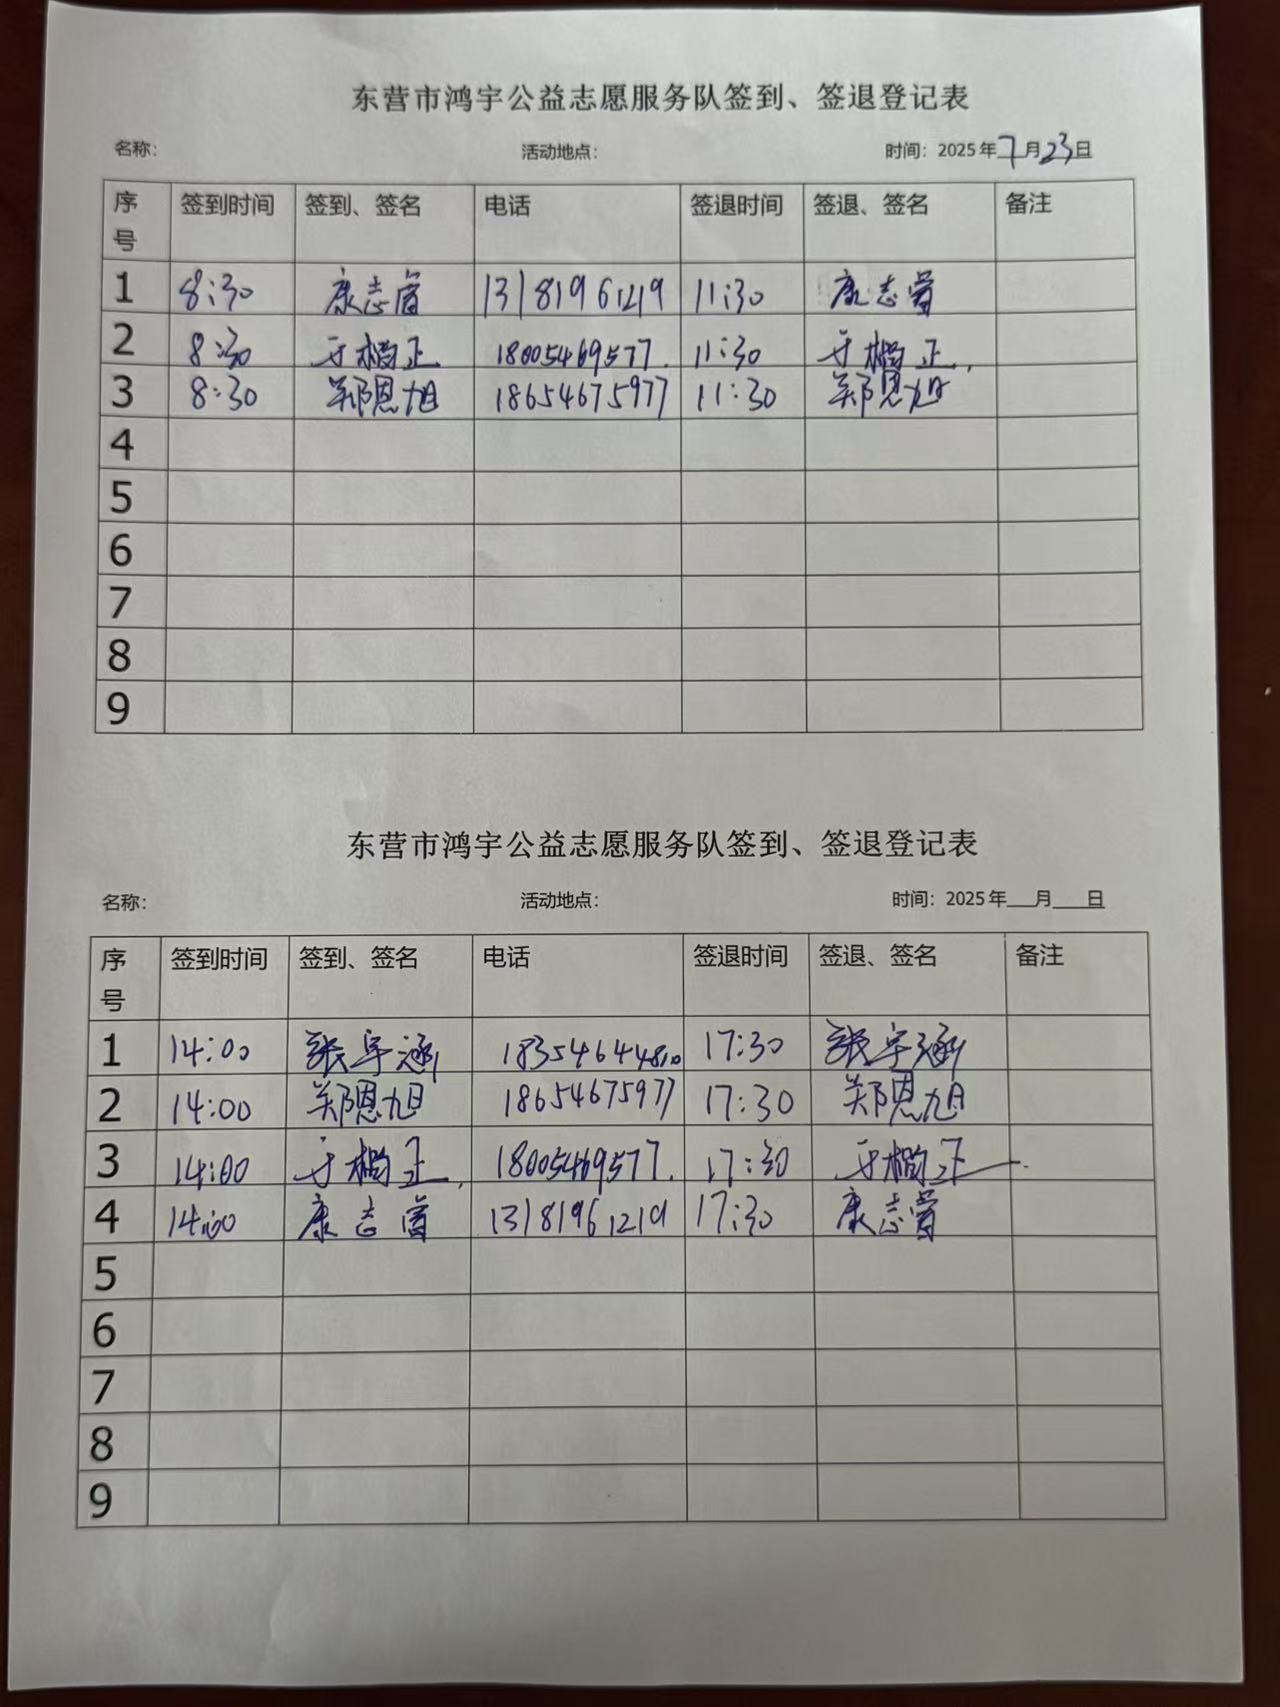 东营市鸿宇公益志愿服务队签到、签退登记表
名称： 活动地点： 时间：2025年7月23日
序号 签到时间 签到、签名 电话 签退时间 签退、签名 备注
1 8:30 康志 13181961219 11:30 康志
2 8:30 于楷正 18005469577. 11:30 于楷正.
3 8:30 郑恩旭 18654675977 11:30 郑恩旭
4
5
6
7
8
9
东营市鸿宇公益志愿服务队签到、签退登记表
名称： 活动地点： 时间：2025年___月___日
序号 签到时间 签到、签名 电话 签退时间 签退、签名 备注
1 14:00 张宇涵 18354644810 17:30 张宇涵
2 14:00 郑恩旭 18654675977 17:30 郑恩旭
3 14:00 于楷正. 18005469577. 17:30 于楷正.
4 14:00 康志 13181961219 17:30 康志
5
6
7
8
9